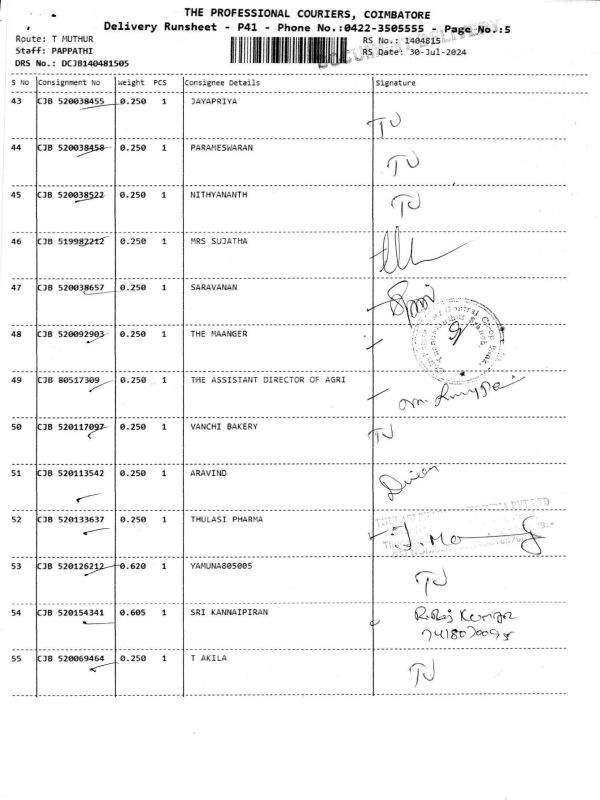 THE PROFESSIONAL COURIERS, COIMBATORE
Delivery Runsheet - P41 - Phone No.:0422-3505555 - Page No.:5
Route: T MUTHUR
RS No.: 1404815
Staff: PAPPATHI
RS Date: 30-Jul-2024
DRS No.: DCJB140481505
S No Consignment No Weight PCS Consignee Details Signature
43 CJB 520038455 0.250 1 JAYAPRIYA TJ
44 CJB 520038458 0.250 1 PARAMESWARAN TJ
45 CJB 520038522 0.250 1 NITHYANANTH TJ
46 CJB 519982212 0.250 1 MRS SUJATHA
47 CJB 520038657 0.250 1 SARAVANAN
48 CJB 520092903 0.250 1 THE MAANGER
49 CJB 80517309 0.250 1 THE ASSISTANT DIRECTOR OF AGRI
50 CJB 520117097 0.250 1 VANCHI BAKERY TJ
51 CJB 520113542 0.250 1 ARAVIND
52 CJB 520133637 0.250 1 THULASI PHARMA
53 CJB 520126212 0.620 1 YAMUNA805005 TJ
54 CJB 520154341 0.605 1 SRI KANNAIPIRAN R.Raj Kumar
55 CJB 520069464 0.250 1 T AKILA TJ